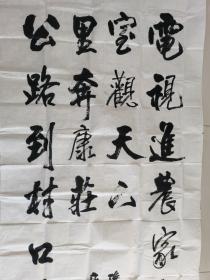 電視進農家
室觀天下
里奔康莊
公路到村口